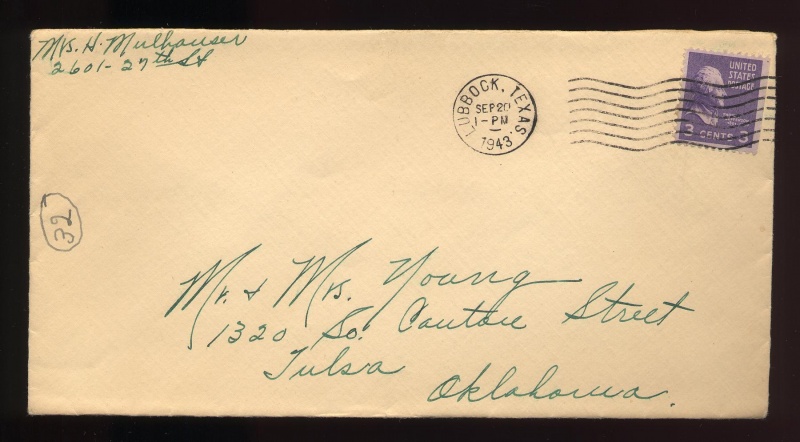 Mrs. H. Mulhauser
2601-27th St
LUBBOCK, TEXAS.
SEP 20
1-PM
1943
UNITED
STATES
POSTAGE
3 CENTS 3
32
Mr. & Mrs. Young
1320 So. Canton Street
Tulsa
Oklahoma.